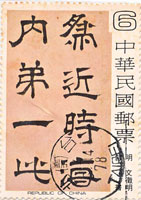 6
中華民國郵票
明 文徵明
為近時海
内弟一此
REPUBLIC OF CHINA